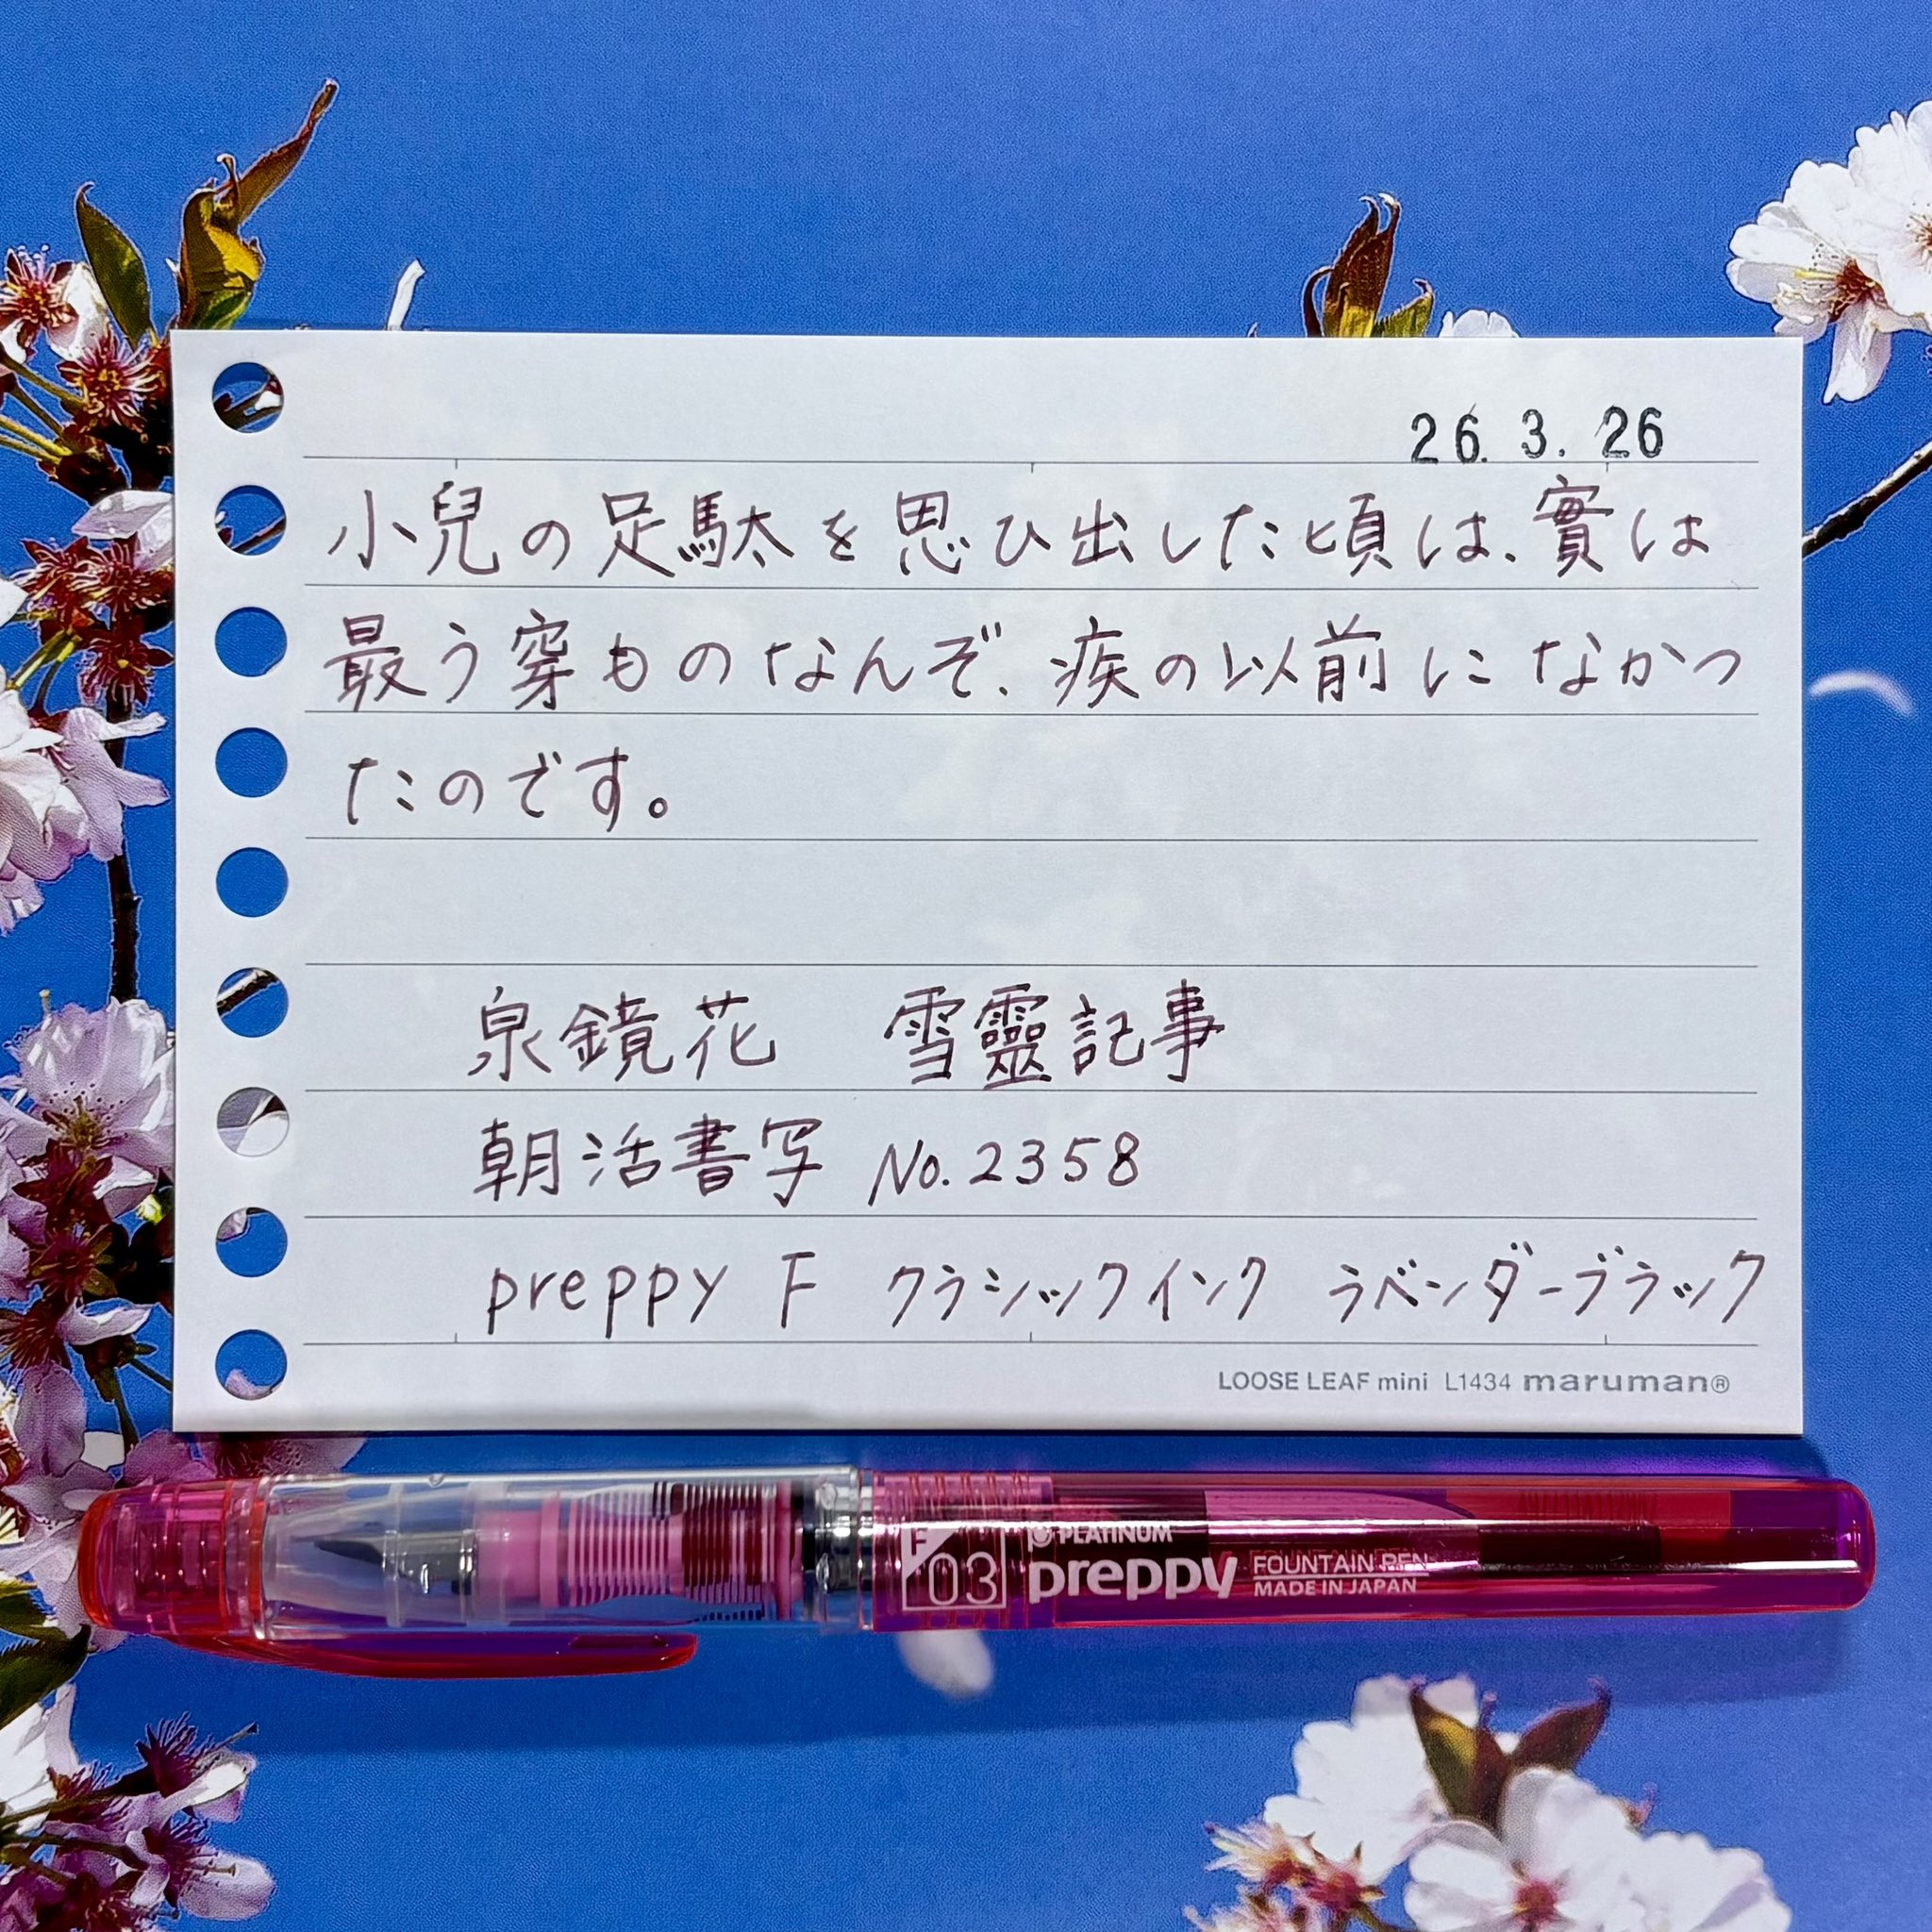 26. 3. 26
小兒の足駄を思ひ出した頃は、實は
最う穿ものなんぞ、疾の以前になかつ
たのです。
泉鏡花 雪靈記事
朝活書写 No.2358
preppy F クラシックインク ラベンダーブラック
LOOSE LEAF mini L1434 maruman®
F 03 PLATINUM preppy FOUNTAIN PEN
MADE IN JAPAN